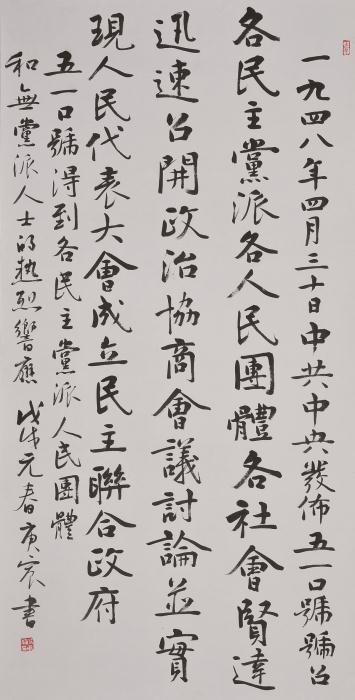 一九四八年四月三十日中共中央發佈五一口號號召
各民主黨派各人民團體各社會賢達
迅速召開政治協商會議討論並實
現人民代表大會成立民主聯合政府
五一口號得到各民主黨派人民團體
和無黨派人士的熱烈響應 戊戌元春庚宸書